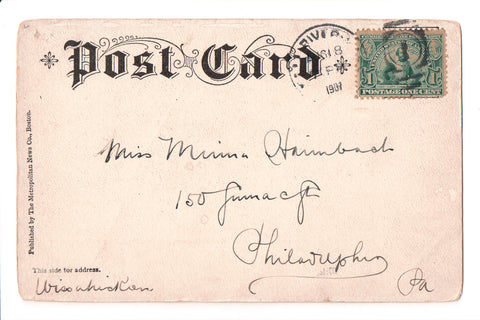 Post Card
RIVER
1907
POSTAGE ONE CENT
Miss Minna Haimbach
150
Philadelphia
Pa
Published by The Metropolitan News Co., Boston.
This side for address.
Wissahickon